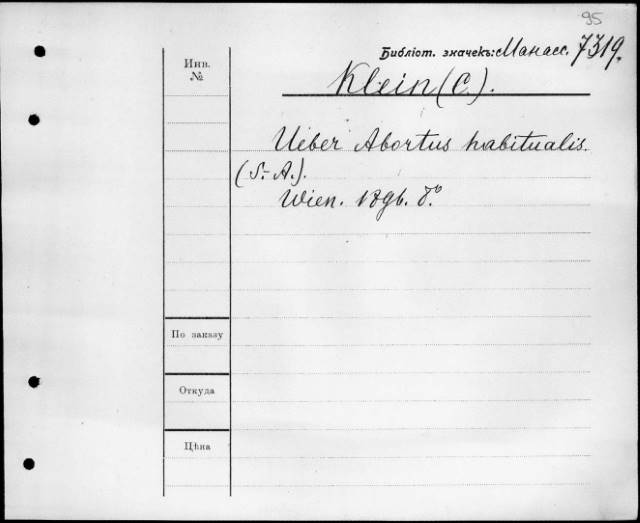 95
Библіот. значекъ: Манасс. 7319.
Инв.
№
Klein (C.).
Ueber Abortus habitualis.
(S.-A.).
Wien. 1896. 8°.
По заказу
Откуда
Цѣна